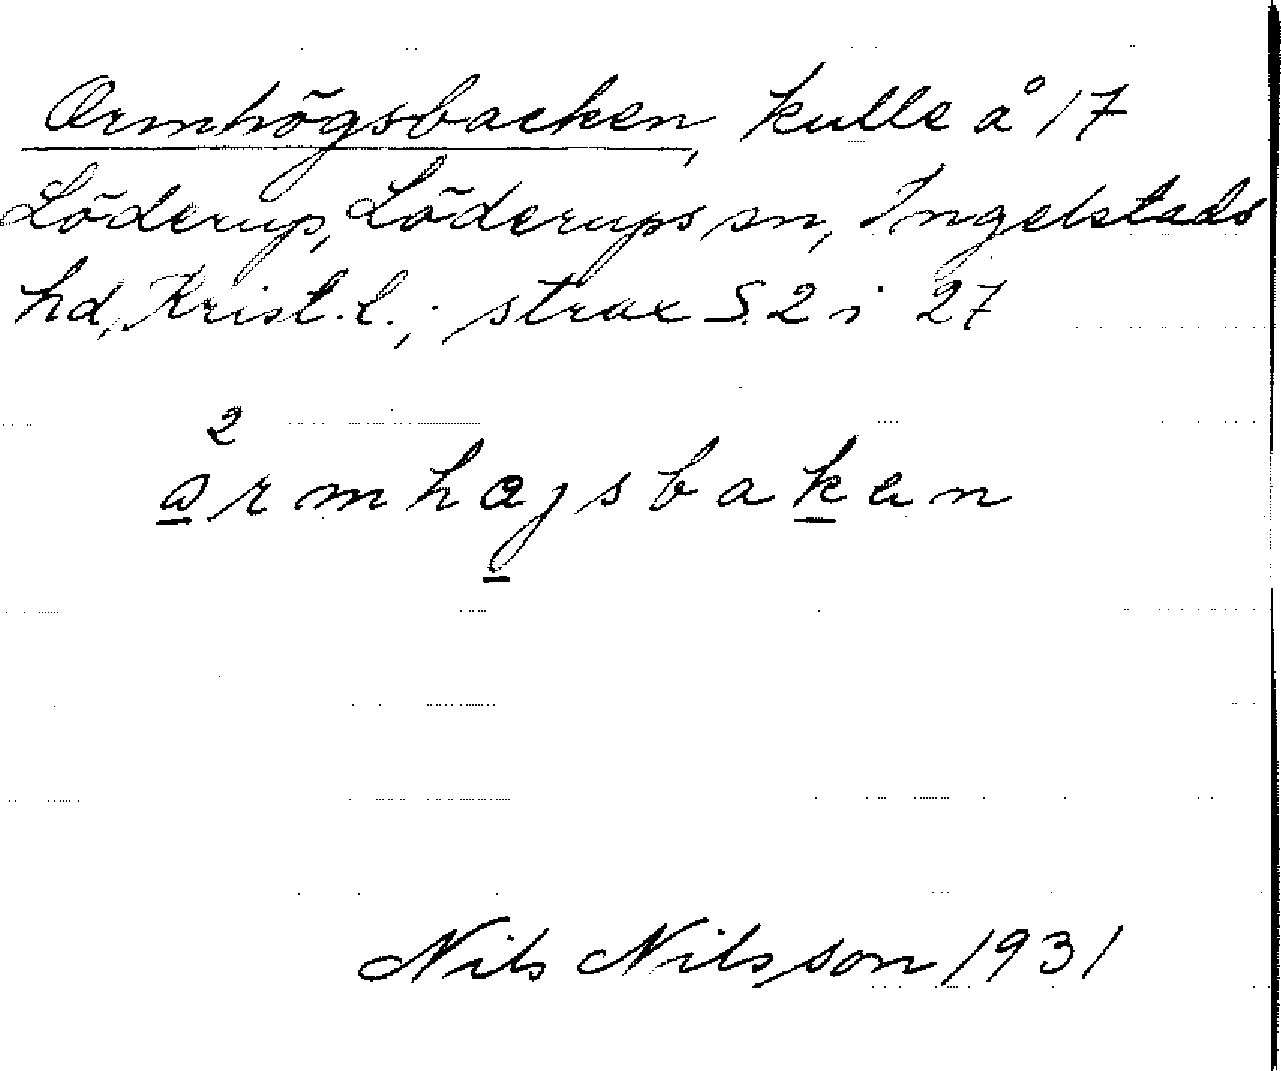 Ormhögsbacken, kulle å 17
Löderup, Löderups sn, Ingelstads
hd, Krist. l.; strax S. 2 i 27
2
ármhøjsbakan
Nils Nilsson 1931